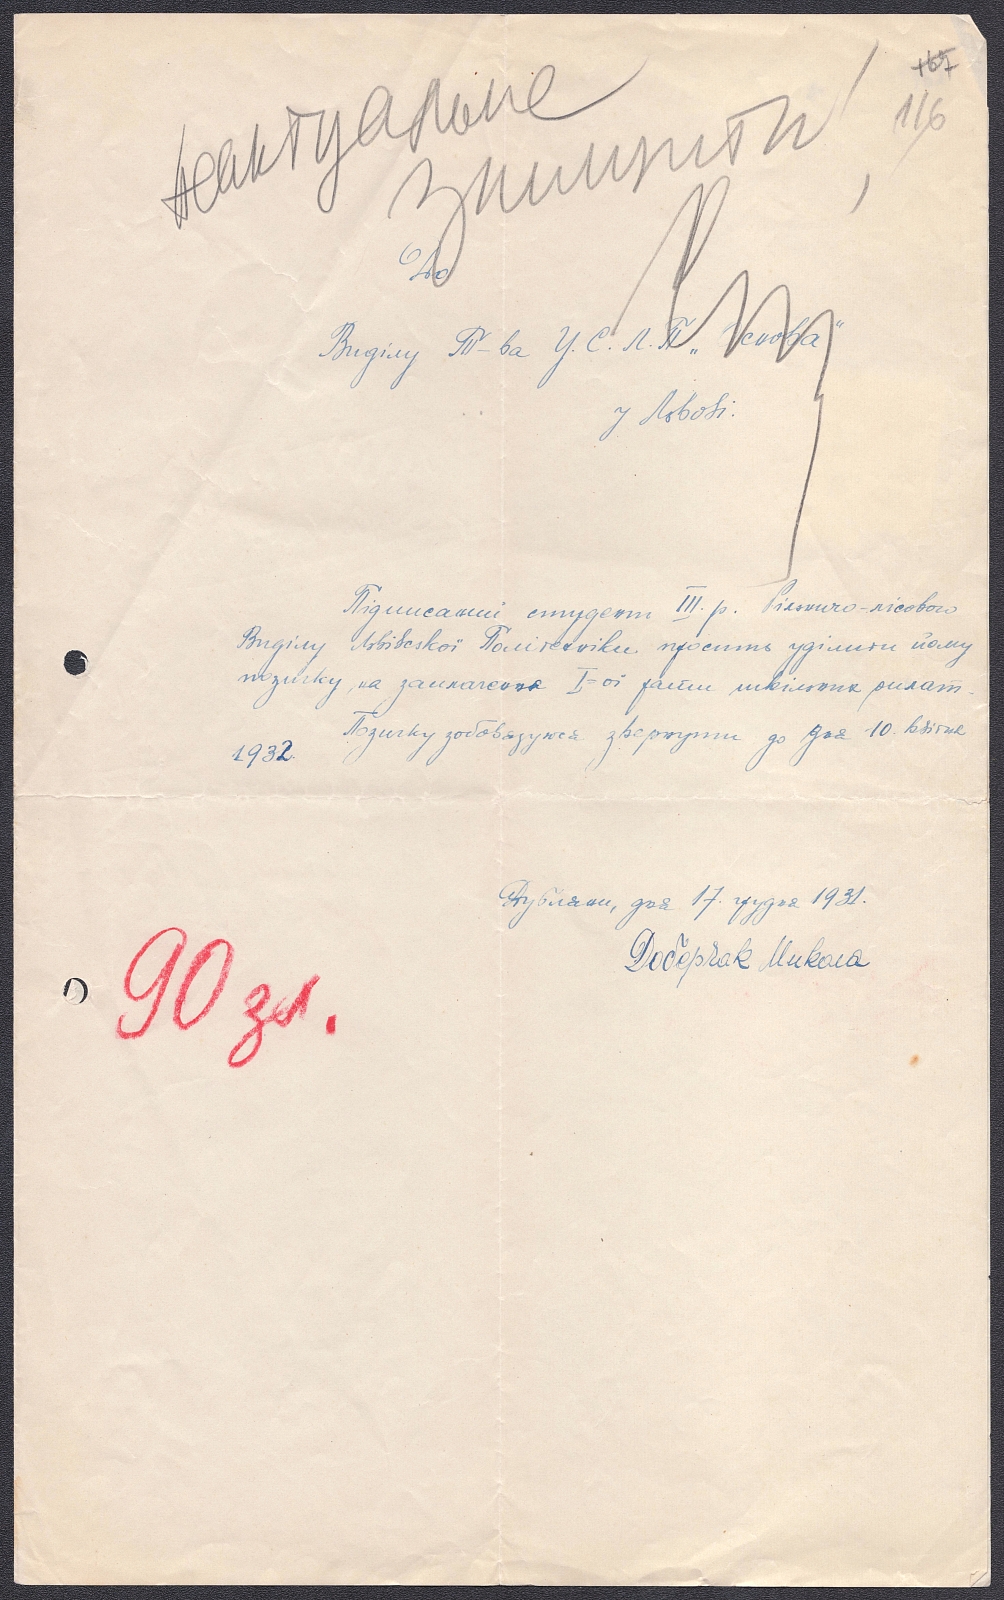 167
116
неактуальне
знищити!
До
Виділу Т-ва У.С.Л.П. „Основа"
у Львові.
Підписаний студент III. р. Рільничо-лісового
Виділу Львівської Політехніки просить уділити йому
позичку на заплачення I-ої рати шкільних оплат.
Позичку зобовязуюся звернути до дня 10. квітня
1932.
Дубляни, дня 17. грудня 1931.
Доберчак Микола
90 зл.